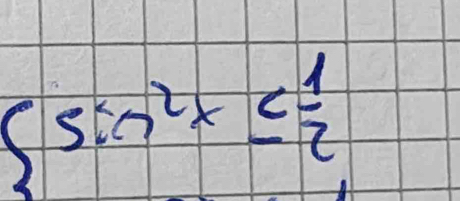 { sin²x ≤ 1/2